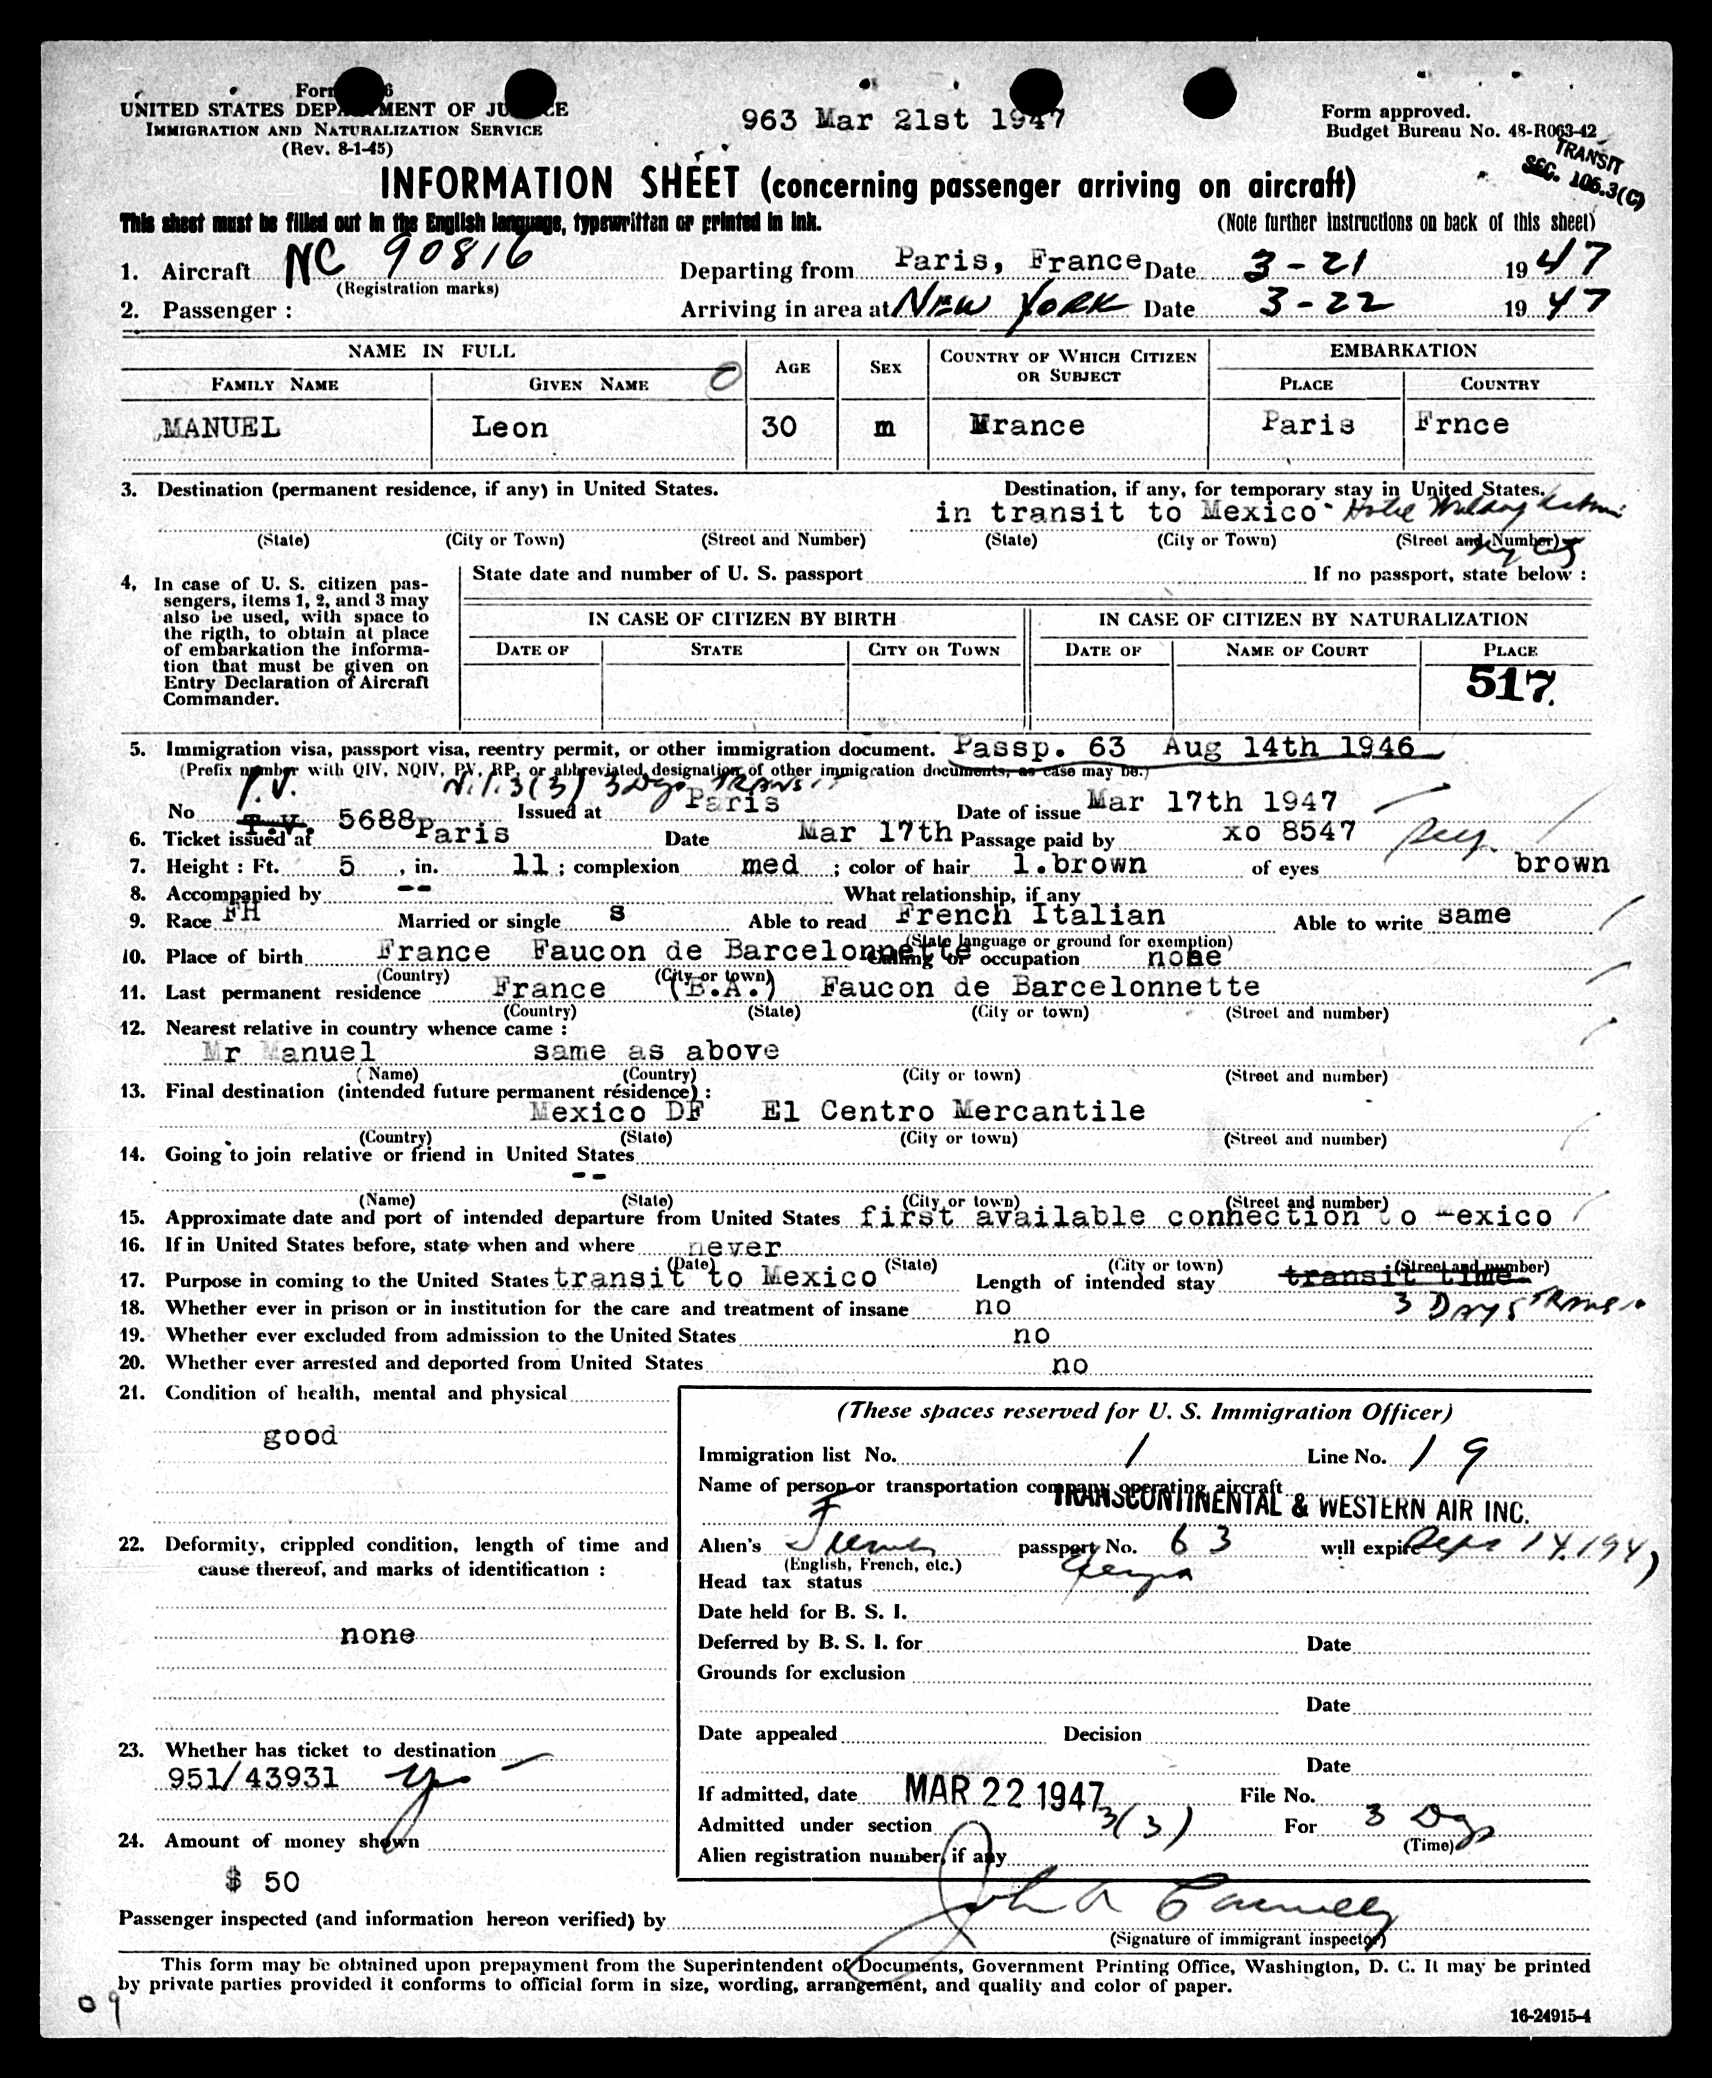 Form 6
UNITED STATES DEPARTMENT OF JUSTICE
IMMIGRATION AND NATURALIZATION SERVICE
(Rev. 8-1-45)
963 Mar 21st 1947
Form approved.
Budget Bureau No. 48-R063-42
TRANSIT
SEC. 106.3(C)
INFORMATION SHEET (concerning passenger arriving on aircraft)
This sheet must be filled out in the English language, typewritten or printed in ink. (Note further instructions on back of this sheet)
1. Aircraft NC 90816 Departing from Paris, France Date 3-21 1947
(Registration marks)
2. Passenger : Arriving in area at NEW YORK Date 3-22 1947
NAME IN FULL AGE SEX COUNTRY OF WHICH CITIZEN OR SUBJECT EMBARKATION
FAMILY NAME GIVEN NAME PLACE COUNTRY
MANUEL Leon 30 m Mrance Paris Frnce
3. Destination (permanent residence, if any) in United States. Destination, if any, for temporary stay in United States.
in transit to Mexico Hotel
(State) (City or Town) (Street and Number) (State) (City or Town) (Street and Number)
4. In case of U. S. citizen pas-
sengers, items 1, 2, and 3 may
also be used, with space to
the rigth, to obtain at place
of embarkation the informa-
tion that must be given on
Entry Declaration of Aircraft
Commander.
State date and number of U. S. passport If no passport, state below :
IN CASE OF CITIZEN BY BIRTH IN CASE OF CITIZEN BY NATURALIZATION
DATE OF STATE CITY OR TOWN DATE OF NAME OF COURT PLACE
517.
5. Immigration visa, passport visa, reentry permit, or other immigration document. Passp. 63 Aug 14th 1946
(Prefix number with QIV, NQIV, PV, RP, or abbreviated designation of other immigration documents, as case may be.)
P.V. N.I. 3(3) 3 Dys TRANSIT
No T.V. 5688 Issued at Paris Date of issue Mar 17th 1947
6. Ticket issued at Paris Date Mar 17th Passage paid by xo 8547
7. Height : Ft. 5 , in. 11 ; complexion med ; color of hair l.brown of eyes brown
8. Accompanied by -- What relationship, if any
9. Race FH Married or single s Able to read French Italian Able to write same
(State language or ground for exemption)
10. Place of birth France Faucon de Barcelonnette Calling or occupation none
(Country) (City or town)
11. Last permanent residence France (B.A.) Faucon de Barcelonnette
(Country) (State) (City or town) (Street and number)
12. Nearest relative in country whence came :
Mr Manuel same as above
( Name) (Country) (City or town) (Street and number)
13. Final destination (intended future permanent résidence) :
Mexico DF El Centro Mercantile
(Country) (State) (City or town) (Street and number)
14. Going to join relative or friend in United States
--
(Name) (State) (City or town) (Street and number)
15. Approximate date and port of intended departure from United States first available connection to Mexico
16. If in United States before, state when and where never
(Date) (State) (City or town) (Street and number)
17. Purpose in coming to the United States transit to Mexico Length of intended stay transit time
3 DAYS TRANSIT
18. Whether ever in prison or in institution for the care and treatment of insane no
19. Whether ever excluded from admission to the United States no
20. Whether ever arrested and deported from United States no
21. Condition of health, mental and physical
good
22. Deformity, crippled condition, length of time and
cause thereof, and marks of identification :
none
23. Whether has ticket to destination
951/43931 yes
24. Amount of money shown
$ 50
(These spaces reserved for U. S. Immigration Officer)
Immigration list No. 1 Line No. 19
Name of person or transportation company operating aircraft
TRANSCONTINENTAL & WESTERN AIR INC.
Alien's French passport No. 63 will expire Sept 14.1947
(English, French, etc.)
Head tax status Exempt
Date held for B. S. I.
Deferred by B. S. I. for Date
Grounds for exclusion
Date
Date appealed Decision
Date
If admitted, date MAR 22 1947 File No.
Admitted under section 3(3) For 3 Dys
(Time)
Alien registration number, if any
Passenger inspected (and information hereon verified) by John A
(Signature of immigrant inspector)
This form may be obtained upon prepayment from the Superintendent of Documents, Government Printing Office, Washington, D. C. It may be printed
by private parties provided it conforms to official form in size, wording, arrangement, and quality and color of paper.
09
16-24915-4